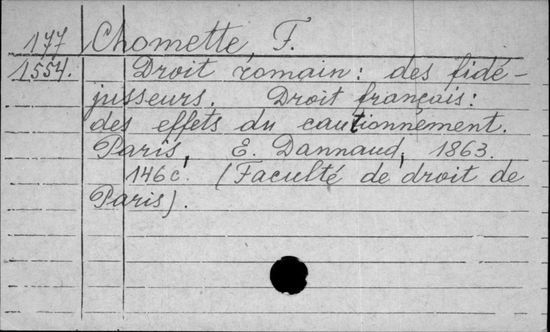 177 Chomette, F.
1554. Droit romain: des fidé-
jusseurs. Droit français:
des effets du cautionnement.
Paris, E. Dannaud, 1863.
146c. (Faculté de droit de
Paris).